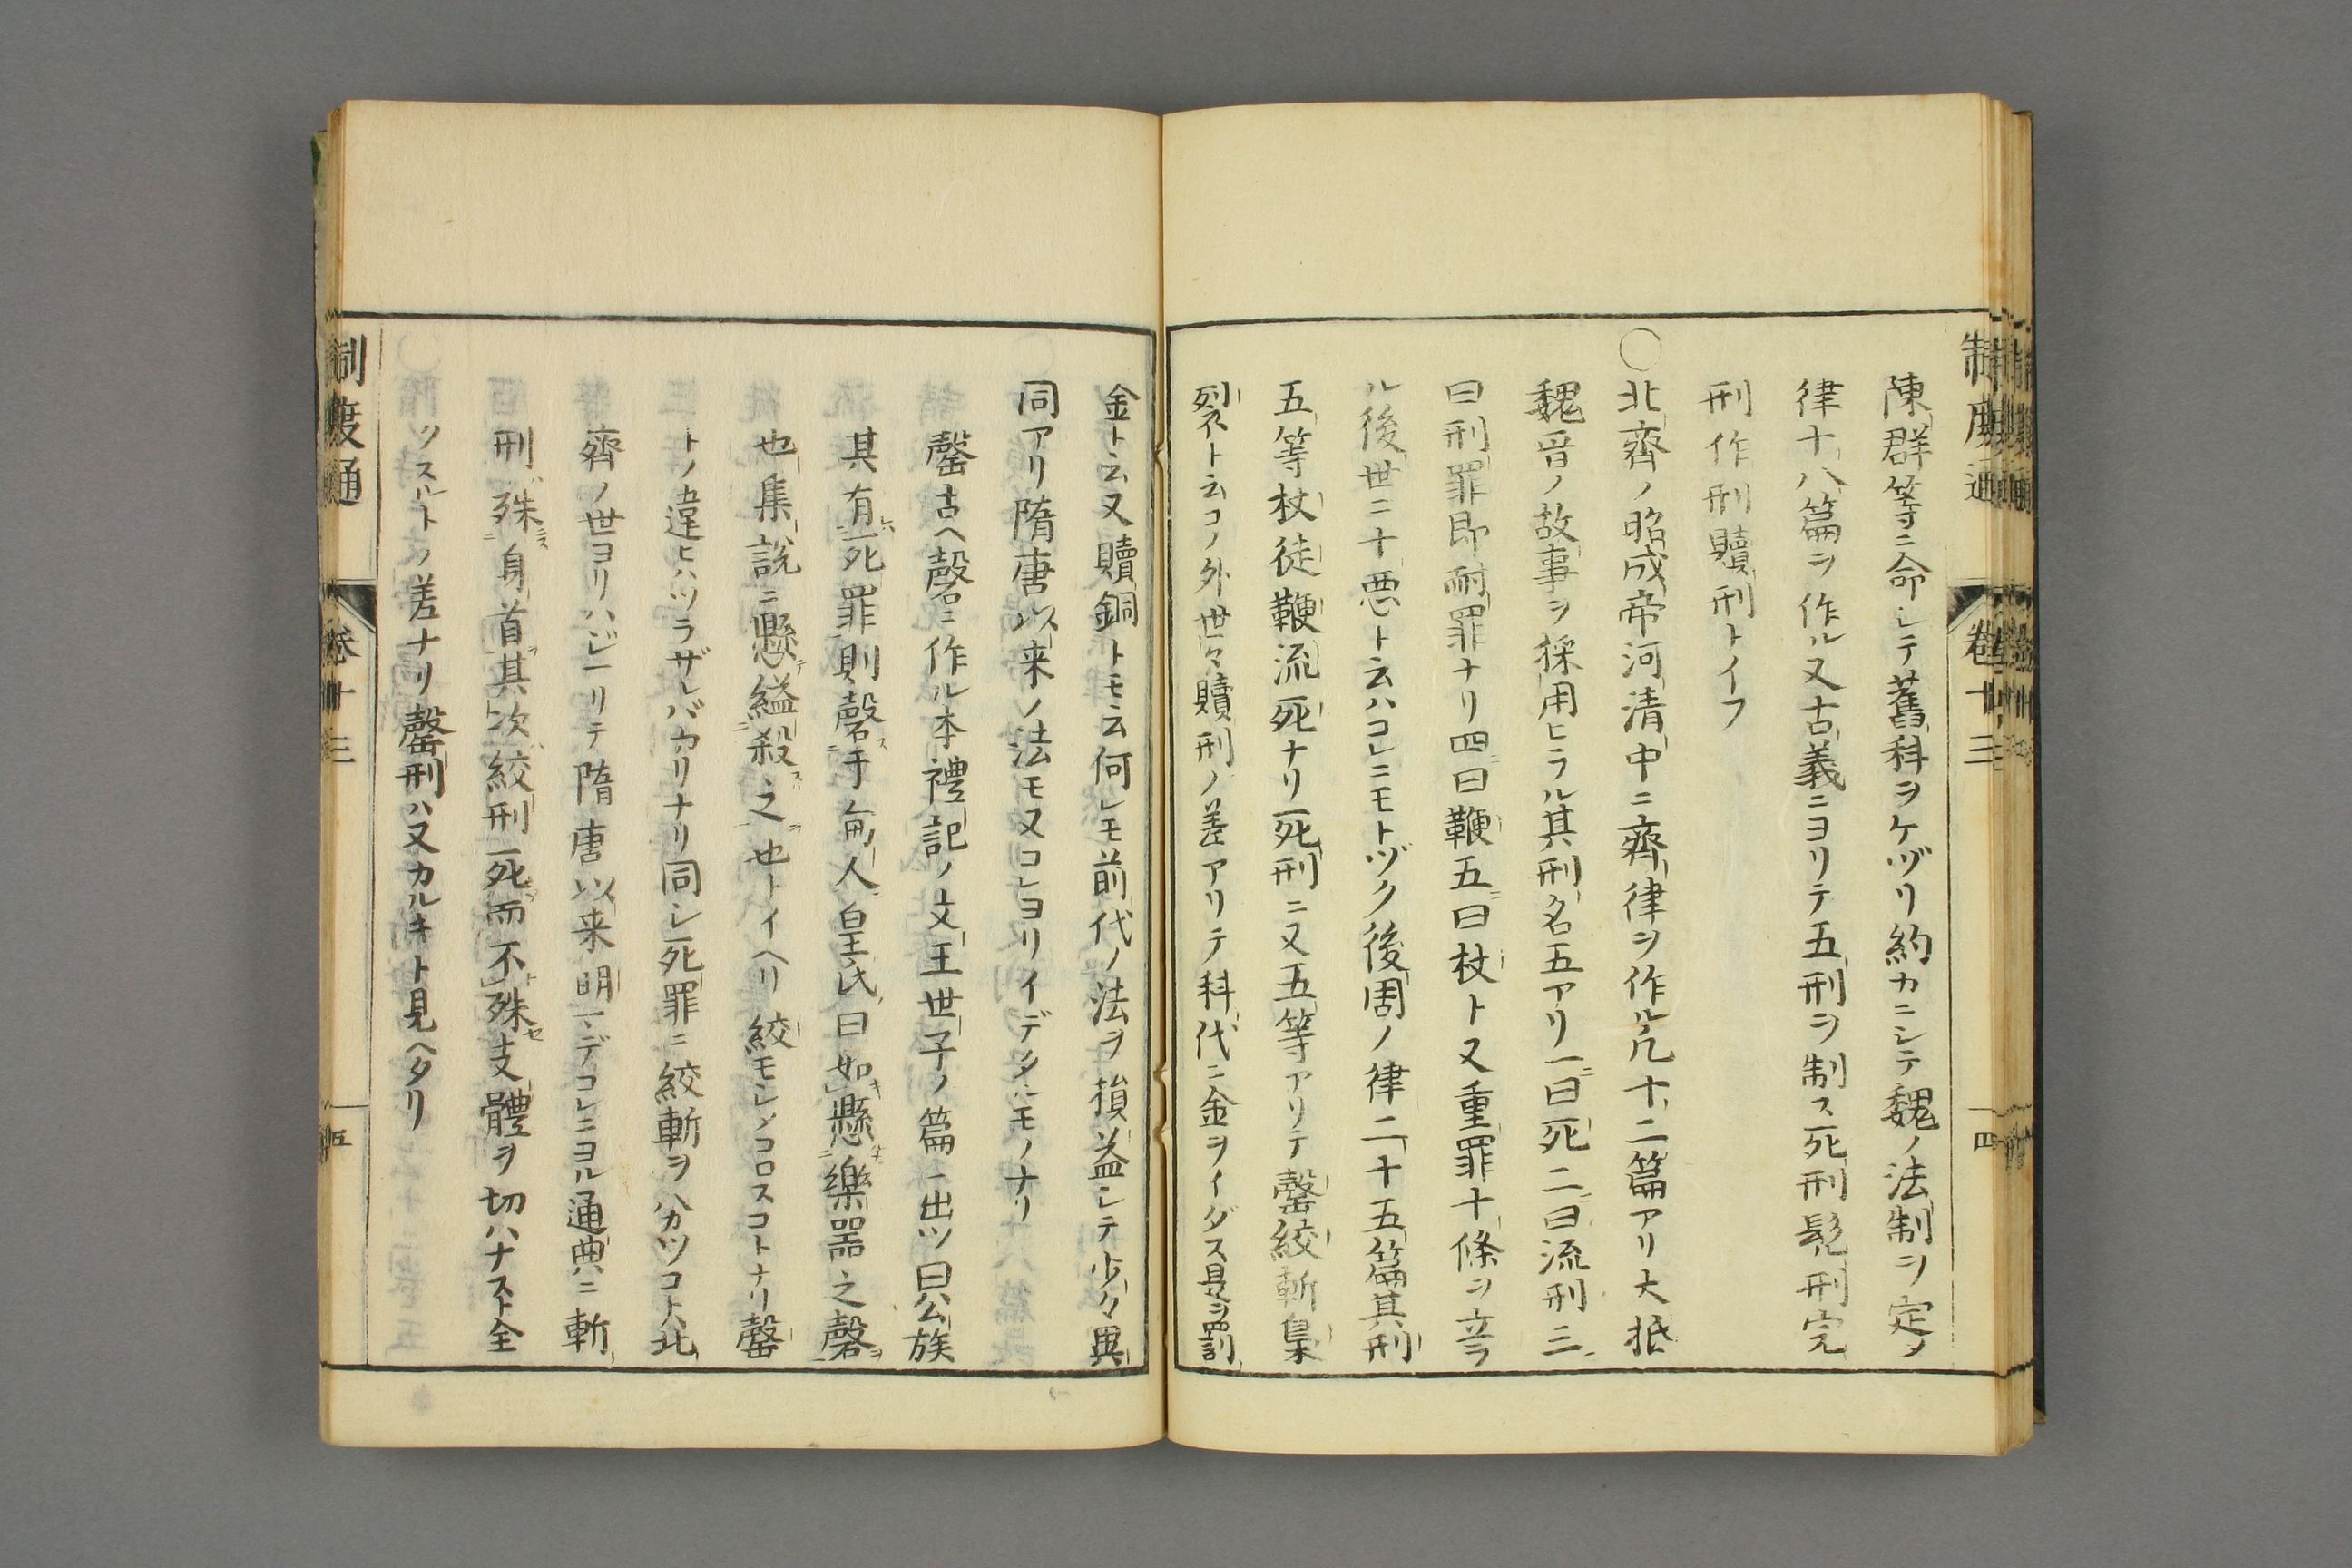 制度通 卷十三 四
陳群等ニ命シテ舊科ヲケヅリ約カニシテ魏ノ法制ヲ定メ
律十八篇ヲ作ル又古義ニヨリテ五刑ヲ制ス死刑髡刑完
刑作刑贖刑トイフ
〇北齊ノ昭成帝河清中ニ齊律ヲ作ル凡十二篇アリ大抵
魏晉ノ故事ヲ採用ヒラル其刑名五アリ一曰死二曰流刑三
曰刑罪即耐罪ナリ四曰鞭五曰杖ト又重罪十條ヲ立ラ
ル後世ニ十悪ト云ハコレニモトヅク後周ノ律二十五篇其刑
五等杖徒鞭流死ナリ死刑ニ又五等アリテ罄絞斬梟
裂ト云コノ外世々贖刑ノ差アリテ科代ニ金ヲイダス是ヲ罰
金ト云又贖銅トモ云何レモ前代ノ法ヲ損益シテ少々異
同アリ隋唐以来ノ法モ又コレヨリイデタルモノナリ
罄古ヘ磬ニ作ル本禮記ノ文王世子ノ篇ニ出ツ曰公族
其有死罪則磬于甸人皇氏曰如懸樂器之磬
也集説ニ懸縊殺之也トイヘリ絞モシメコロスコトナリ罄
トノ違ヒハツラザルバカリナリ同シ死罪ニ絞斬ヲハカツコト北
齊ノ世ヨリハジマリテ隋唐以来明マデコレニヨル通典ニ斬
刑ハ殊身首其次絞刑死而不殊支體ヲ切ハナスト全
ツスルトノ差ナリ罄刑ハ又カルキト見ヘタリ
制度通 卷十三 五